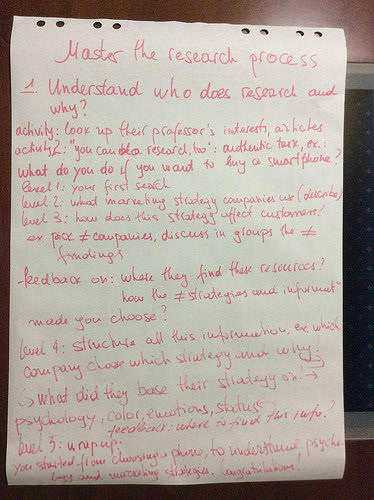 Master the research process
1. Understand who does research and
why?
activity: look up their professor's interests, articles
activity 2: "you can do a research, too": authentic task, ex.:
what do you do if you want to buy a smartphone?
Level 1: your first search
Level 2: what marketing strategy companies use (describe)
Level 3: how does this strategy affect customers?
ex pick ≠ companies, discuss in groups the ≠
findings
-feedback on: where they find these resources?
how the ≠ strategies and informat°
made you choose?
Level 4: structure all this information, ex which
company chose which strategy and why?
↳ what did they base their strategy on? →
psychology, color, emotions, status
feedback: where to find this info.?
Level 5: wrap up:
you started from choosing a phone, to understand psycho-
logy and marketing strategies. Congratulations!